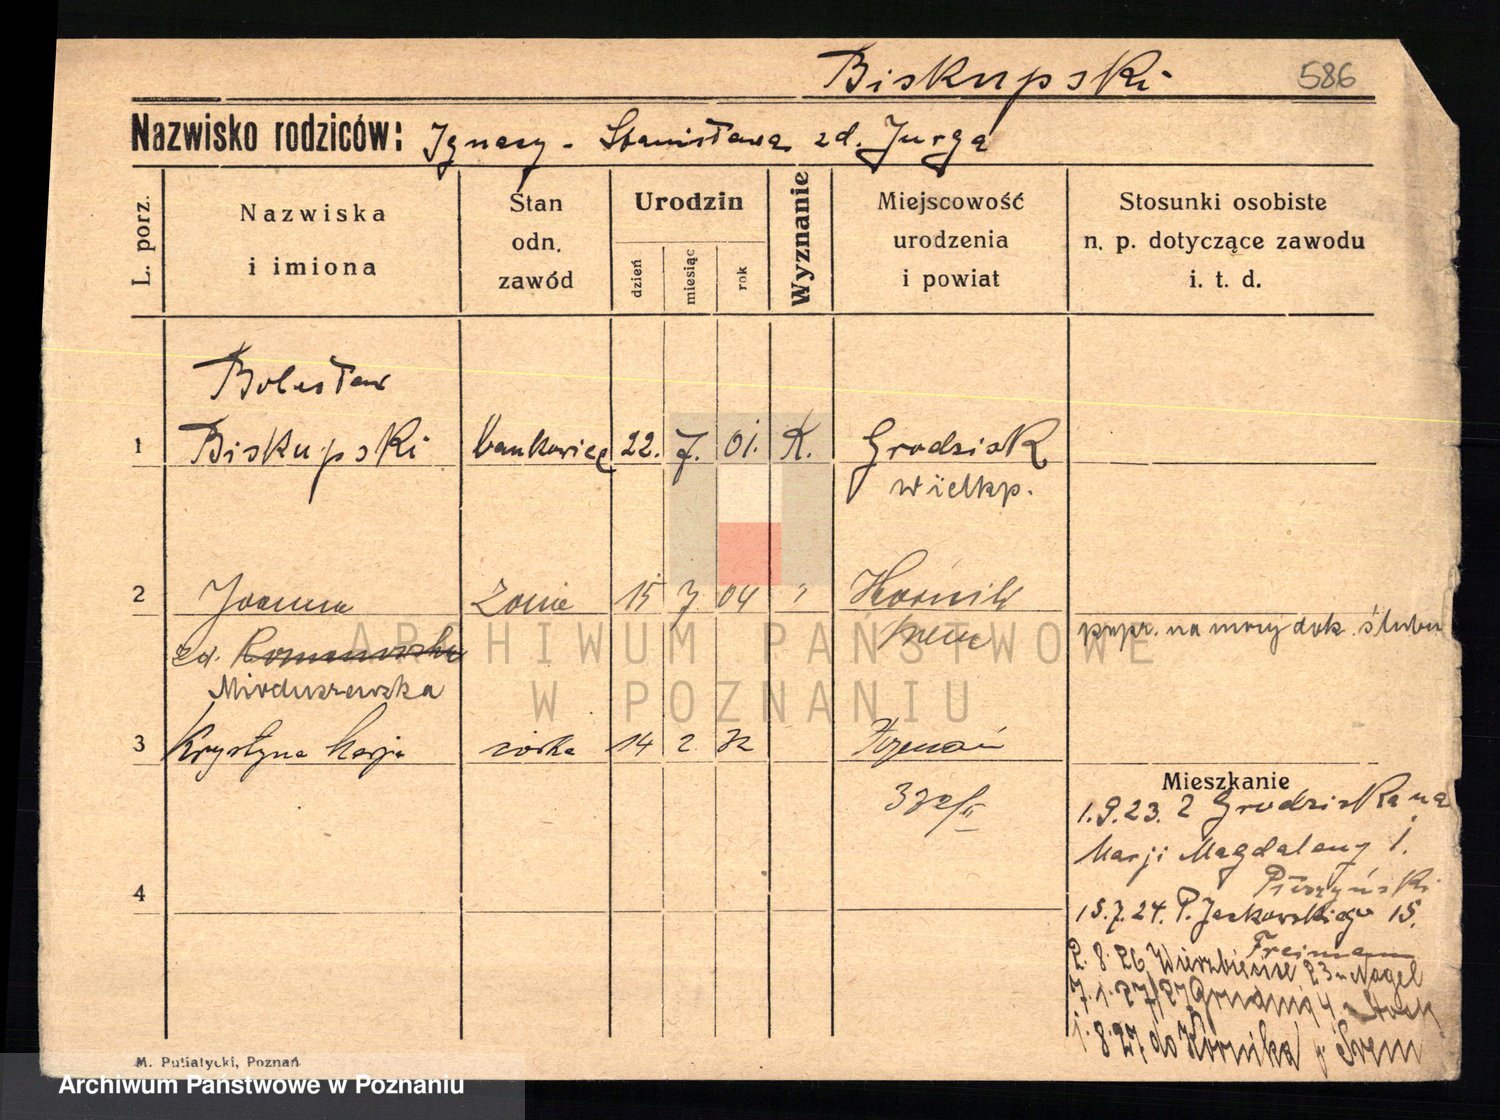 Biskupski
586
Nazwisko rodziców: Ignacy - Stanisława zd. Jurga
L. porz.
Nazwiska
i imiona
Stan
odn.
zawód
Urodzin
dzień
miesiąc
rok
Wyznanie
Miejscowość
urodzenia
i powiat
Stosunki osobiste
n. p. dotyczące zawodu
i. t. d.
Bolesław
1 Biskupski bankowiec 22. 7. 01. K. Grodzisk
Wielkp.
2 Joanna żona 15 7 04 " Kórnik
Śrem
popr. na mocy dok. ślubu
zd. Romanowska
Mirduszewska
3 Krystyna Marja córka 14 2 32 Poznań
Mieszkanie
1.9.23. z Grodziska na
Marji Magdaleny 1.
Pluczyński
4
15.7.24. P. Jackowskiego 15.
Freimann
2.8.26 Wierzbięcice 23 u Nagel
7.1.27/27 Grudnia 4
1.8.27 do Kórnika p Śrem
M. Putiatycki, Poznań
ARCHIWUM PAŃSTWOWE
W POZNANIU
Archiwum Państwowe w Poznaniu